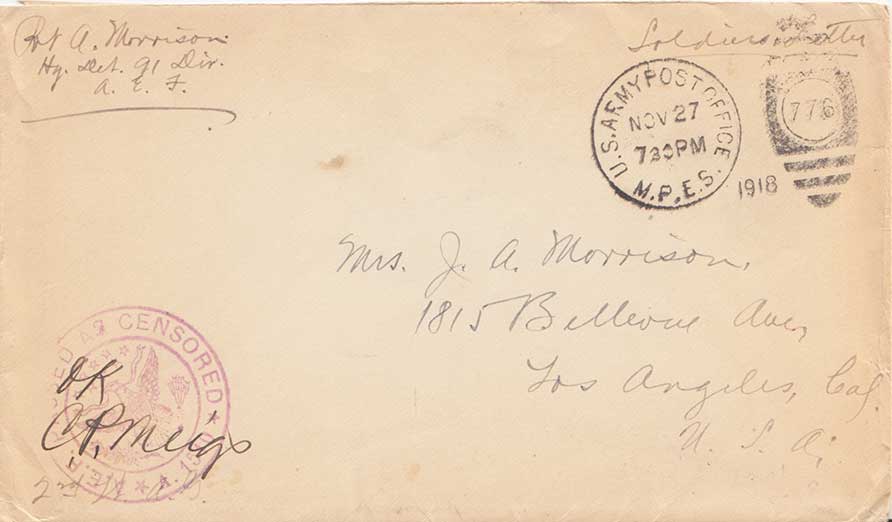 Pvt A. Morrison
Hq. Det. 91 Div.
A. E. F.
Soldiers Letter
U.S. ARMY POST OFFICE
NOV 27
730PM
M.P.E.S.
1918
776
Mrs. J. A. Morrison,
1815 Bellevue Ave,
Los Angeles, Cal.
U. S. A.
AS CENSORED
OK
C.P. Meigs
2nd